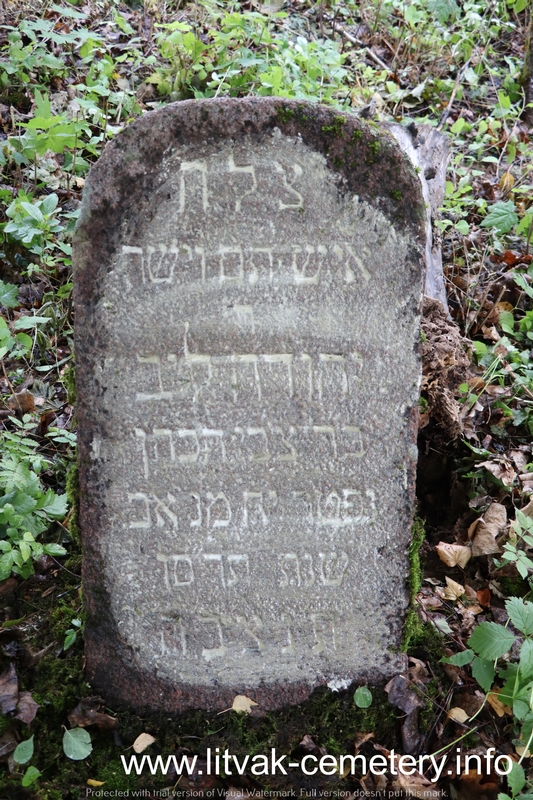 צ ל ת
איש תם וישר
ר
יהודה ליב
בר צבי הכהן
נפטר יח מנ אב
שנת תרס
ת נ צ ב ה
www.litvak-cemetery.info
Protected with trial version of Visual Watermark. Full version doesn't put this mark.